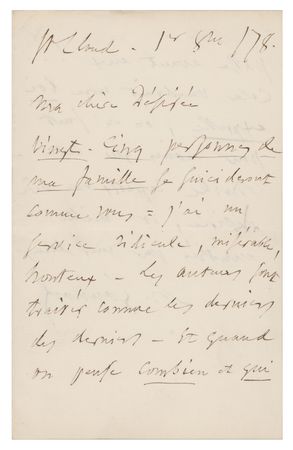 St Cloud. 1er 8bre /78.
ma chère Désirée
Vingt-Cinq personnes de
ma famille se suicideront
comme vous = j'ai un
service ridicule, misérable,
honteux - Les auteurs sont
traités comme les derniers
des derniers - Et quand
on pense combien et qui